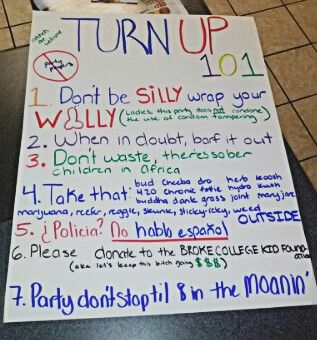 TURN UP
101
party poopers
1. Don't be SILLY wrap your
WILLY (Ladies, this party does not condone
the use of condom tampering)
2. When in doubt, barf it out
3. Don't waste, theres sober
children in Africa
4. Take that: bud cheeba dro herb koosh
420 chronic hydro kush
buddha dank grass joint maryjane
marijuana, reefer, reggie, skunk, stickyicky, weed
OUTSIDE
5. ¿Policia? No hablo español
6. Please donate to the BROKE COLLEGE KID FOUNDATION
(aka let's keep this bitch going $$$)
7. Party don't stop til 8 in the MOANIN'